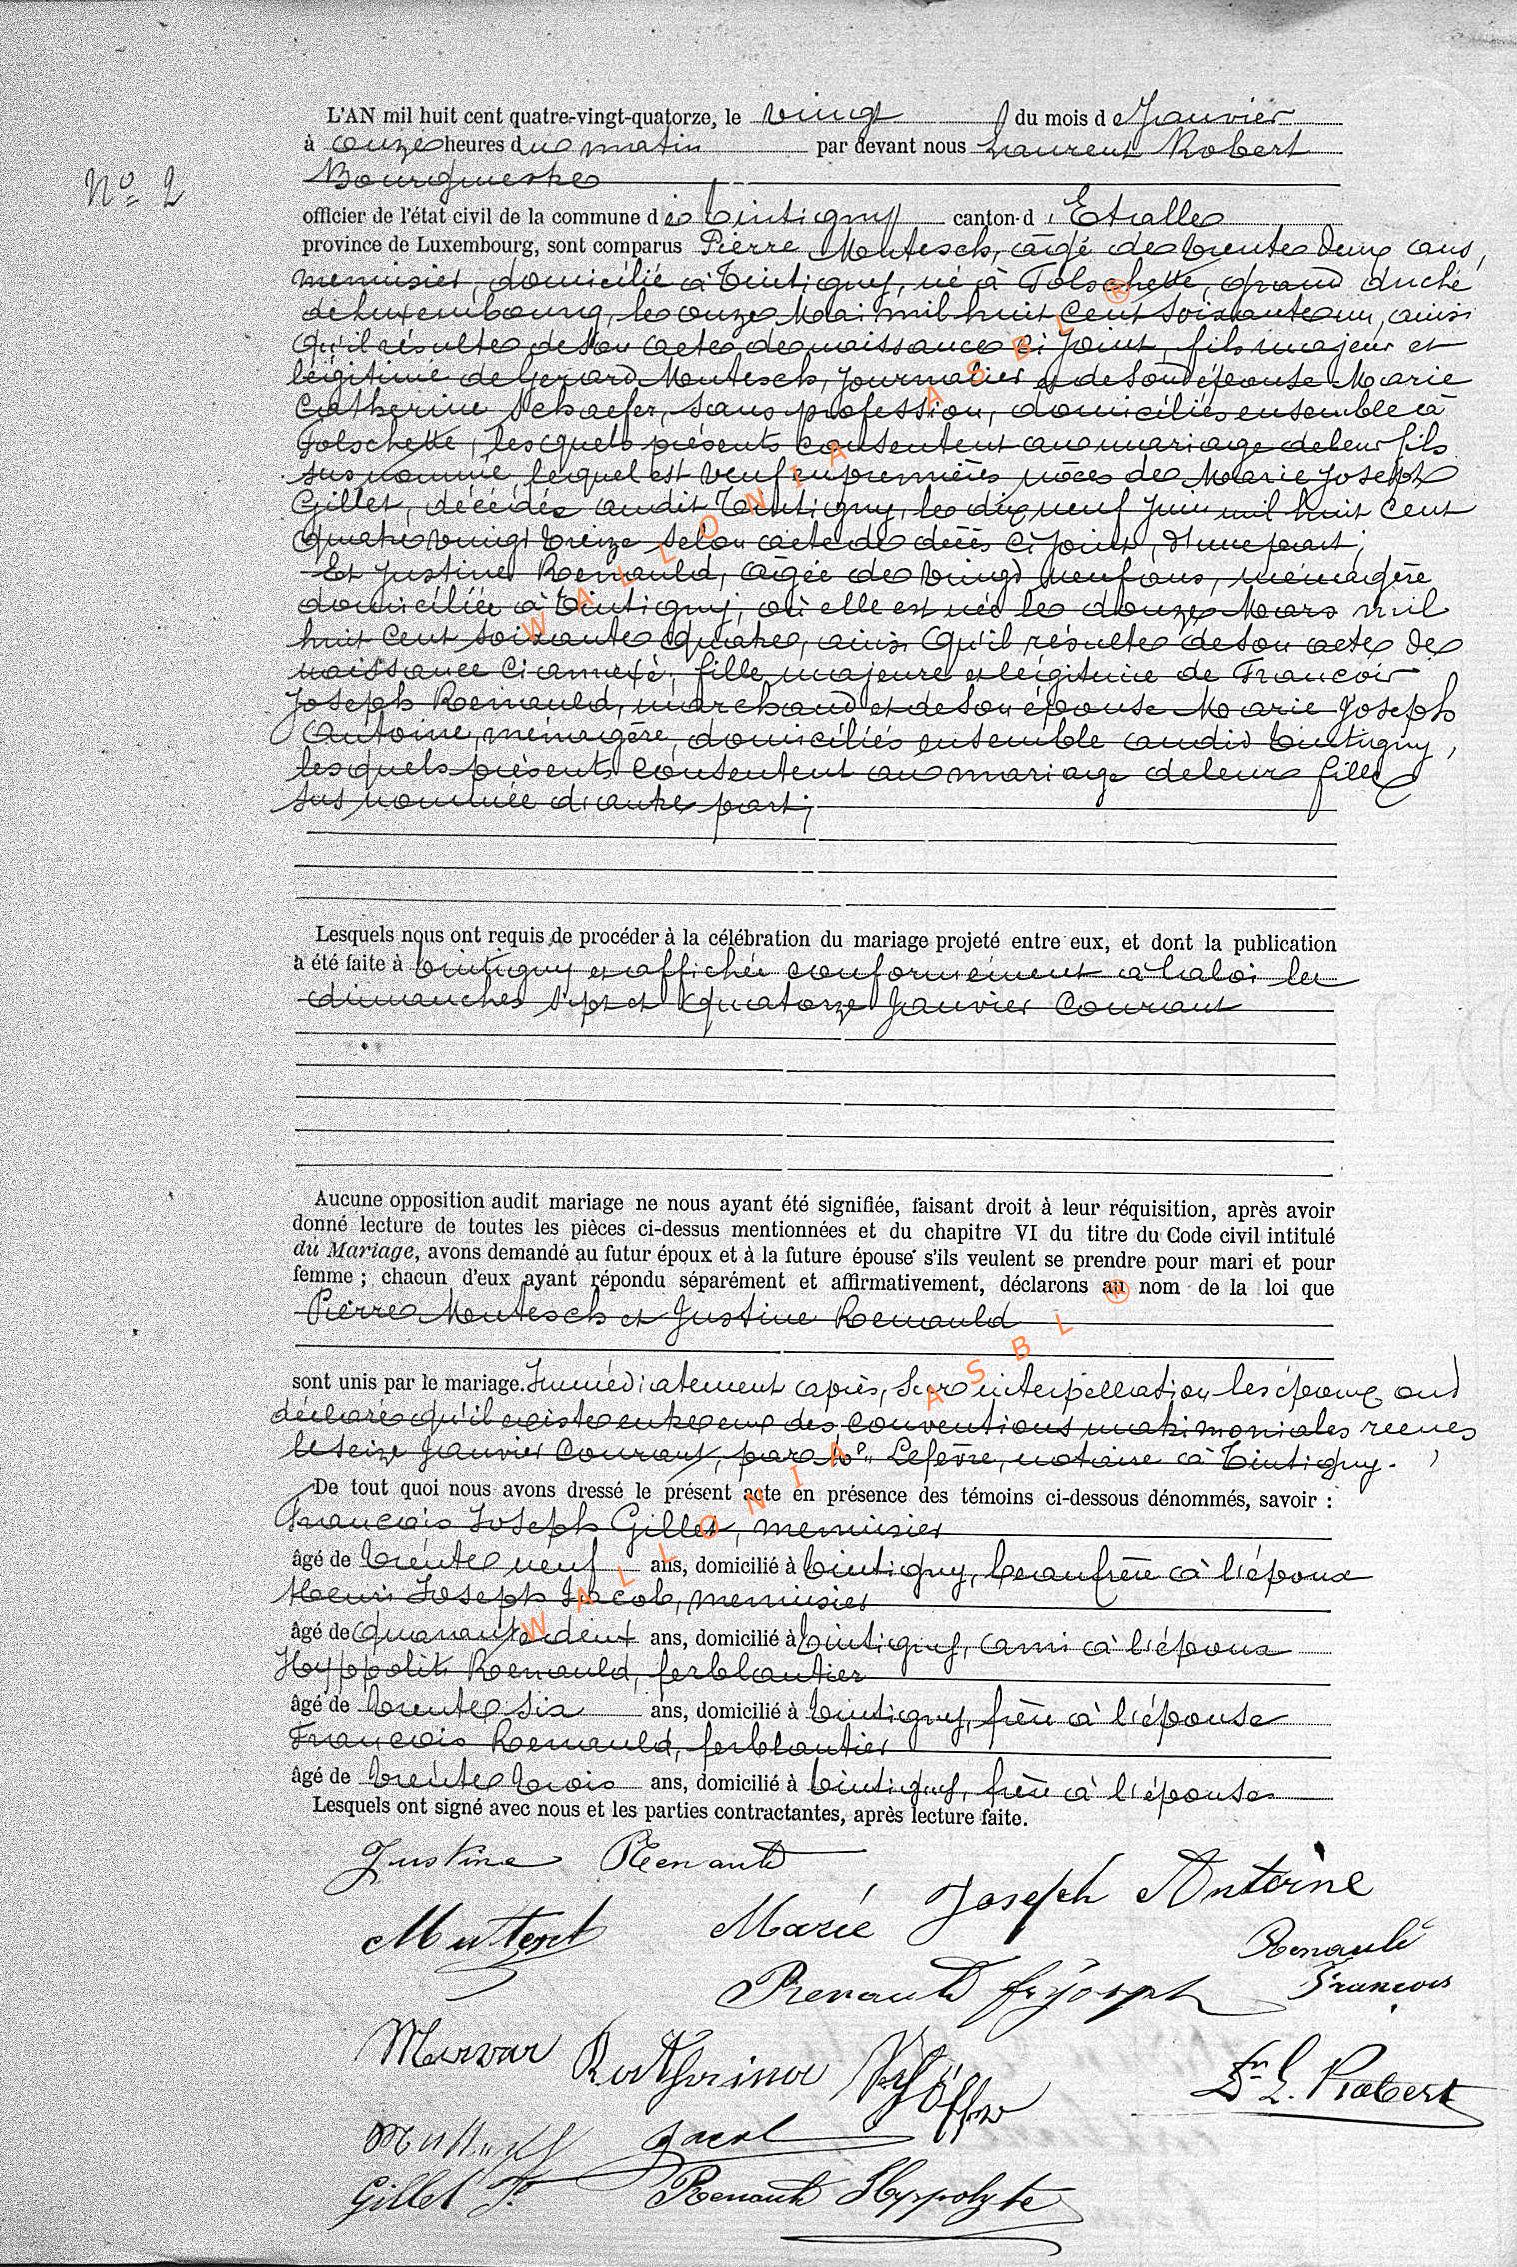 L'AN mil huit cent quatre-vingt-quatorze, le vingt du mois de Janvier
à onze heures du matin par devant nous Laurent Robert
Bourgmestre
N° 2
officier de l'état civil de la commune de Tintigny canton d'Etalle
province de Luxembourg, sont comparus Pierre Mutesch, âgé de trente deux ans,
menuisier, domicilié à Tintigny, né à Folschette, grand duché
de Luxembourg, le onze Mai mil huit cent soixante un, ainsi
qu'il résulte de son acte de naissance ci joint, fils majeur et
légitime de Gerard Mutesch, journalier et de son épouse Marie
Catherine Schaefer, sans profession, domiciliés ensemble à
Folschette, lesquels présents consentent au mariage de leur fils
sus nommé, lequel est veuf en premières nôces de Marie Joseph
Gillet, décédée audit Tintigny, le dix neuf Juin mil huit cent
quatre vingt treize selon acte de décès ci joint, d'une part;
Et Justine Renauld, âgée de vingt neuf ans, ménagère
domiciliée à Tintigny, où elle est née le douze Mars mil
huit cent soixante quatre, ainsi qu'il résulte de son acte de
naissance ci annexé; fille majeure et légitime de François
Joseph Renauld, marchand et de son épouse Marie Joseph
Antoine, ménagère, domiciliés ensemble audit Tintigny,
lesquels présents consentent au mariage de leur fille
sus nommée d'autre part;
Lesquels nous ont requis de procéder à la célébration du mariage projeté entre eux, et dont la publication
a été faite à Tintigny et affichée conformément à la loi les
dimanches sept et quatorze Janvier courant
Aucune opposition audit mariage ne nous ayant été signifiée, faisant droit à leur réquisition, après avoir
donné lecture de toutes les pièces ci-dessus mentionnées et du chapitre VI du titre du Code civil intitulé
du Mariage, avons demandé au futur époux et à la future épouse s'ils veulent se prendre pour mari et pour
femme ; chacun d'eux ayant répondu séparément et affirmativement, déclarons au nom de la loi que
Pierre Mutesch et Justine Renauld
sont unis par le mariage. Immédiatement après, sur interpellation, les époux ont
déclaré qu'il existe entre eux des conventions matrimoniales recues
le seize Janvier courant, par Lefèvre, notaire à Tintigny.
De tout quoi nous avons dressé le présent acte en présence des témoins ci-dessous dénommés, savoir :
François Joseph Gillet, menuisier
âgé de trente neuf ans, domicilié à Tintigny, beaufrère à l'époux
Henri Joseph Jacob, menuisier
âgé de quarante deux ans, domicilié à Tintigny, ami à l'époux
Hyppolite Renauld, ferblantier
âgé de trente six ans, domicilié à Tintigny, frère à l'épouse
François Renauld, ferblantier
âgé de trente trois ans, domicilié à Tintigny, frère à l'épouse
Lesquels ont signé avec nous et les parties contractantes, après lecture faite.
Justine Renauld
Marie Joseph Antoine
Renauld
François
Renauld fs joseph
Dr L. Robert
Jacob
Gillet Renauld Hyppolyte
WALLONIA ASBL ®
WALLONIA ASBL ®